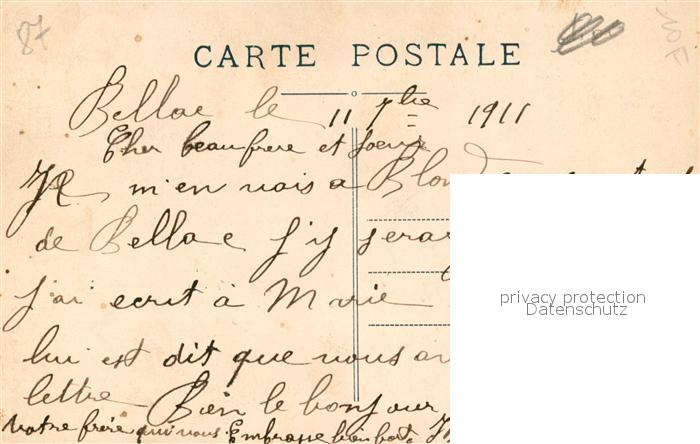 87
10F
CARTE POSTALE
Bellac le 11 7bre 1911
Cher beaufrere et soeur
Je m'en vais a
de Bellac j'y serai
j'ai ecrit à Marie
lui est dit que vous
lettre Bien le bonjour
Votre frère qui vous Embrasse bien fort
privacy protection
Datenschutz